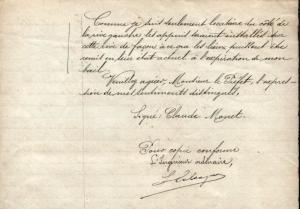 Comme je suis seulement locataire du côté de
la rive gauche les appuis seraient installés sur
cette rive de façon à ce que les lieux puissent être
remis en leur état actuel à l'expiration de mon
bail.
Veuillez agréer, Monsieur le Préfet, l'expres-
sion de mes sentiments distingués,
Signé: Claude Monet.
Pour copie conforme
L'Ingénieur ordinaire,